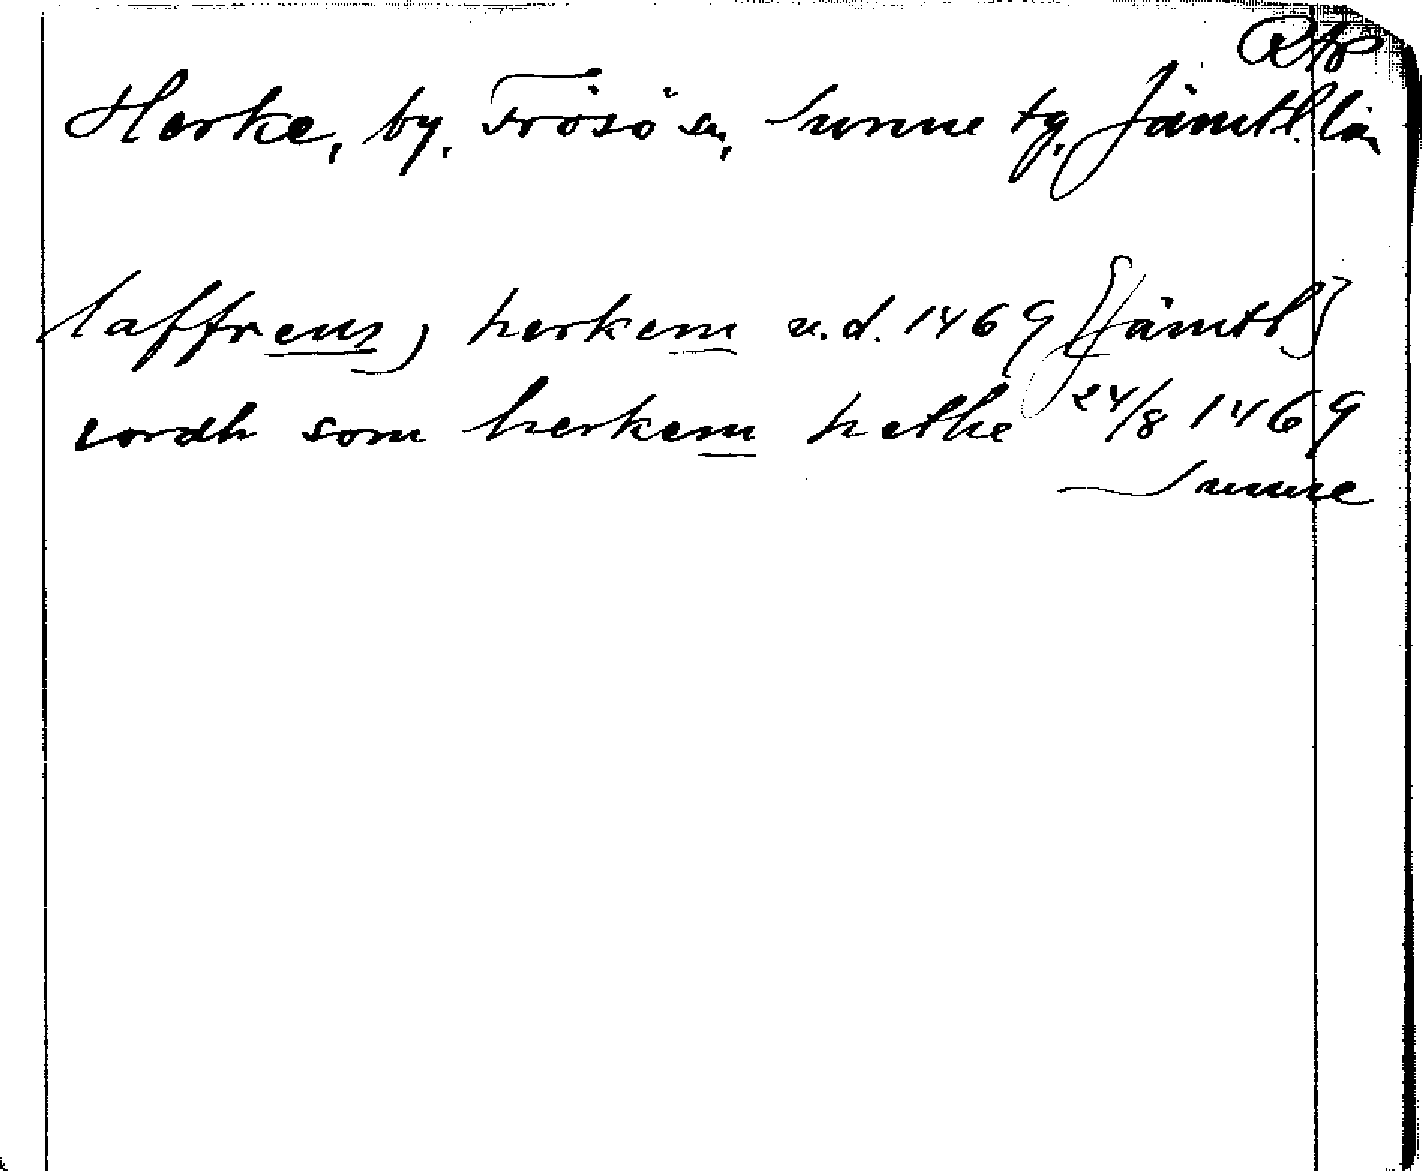 RAp
Herke, by, Frösö sn, Sunne tg, Jämtl. län
laffrens) herkem u.d. 1469 [Jämtl]
iordh som herkem hethe 24/8 1469
Sunne